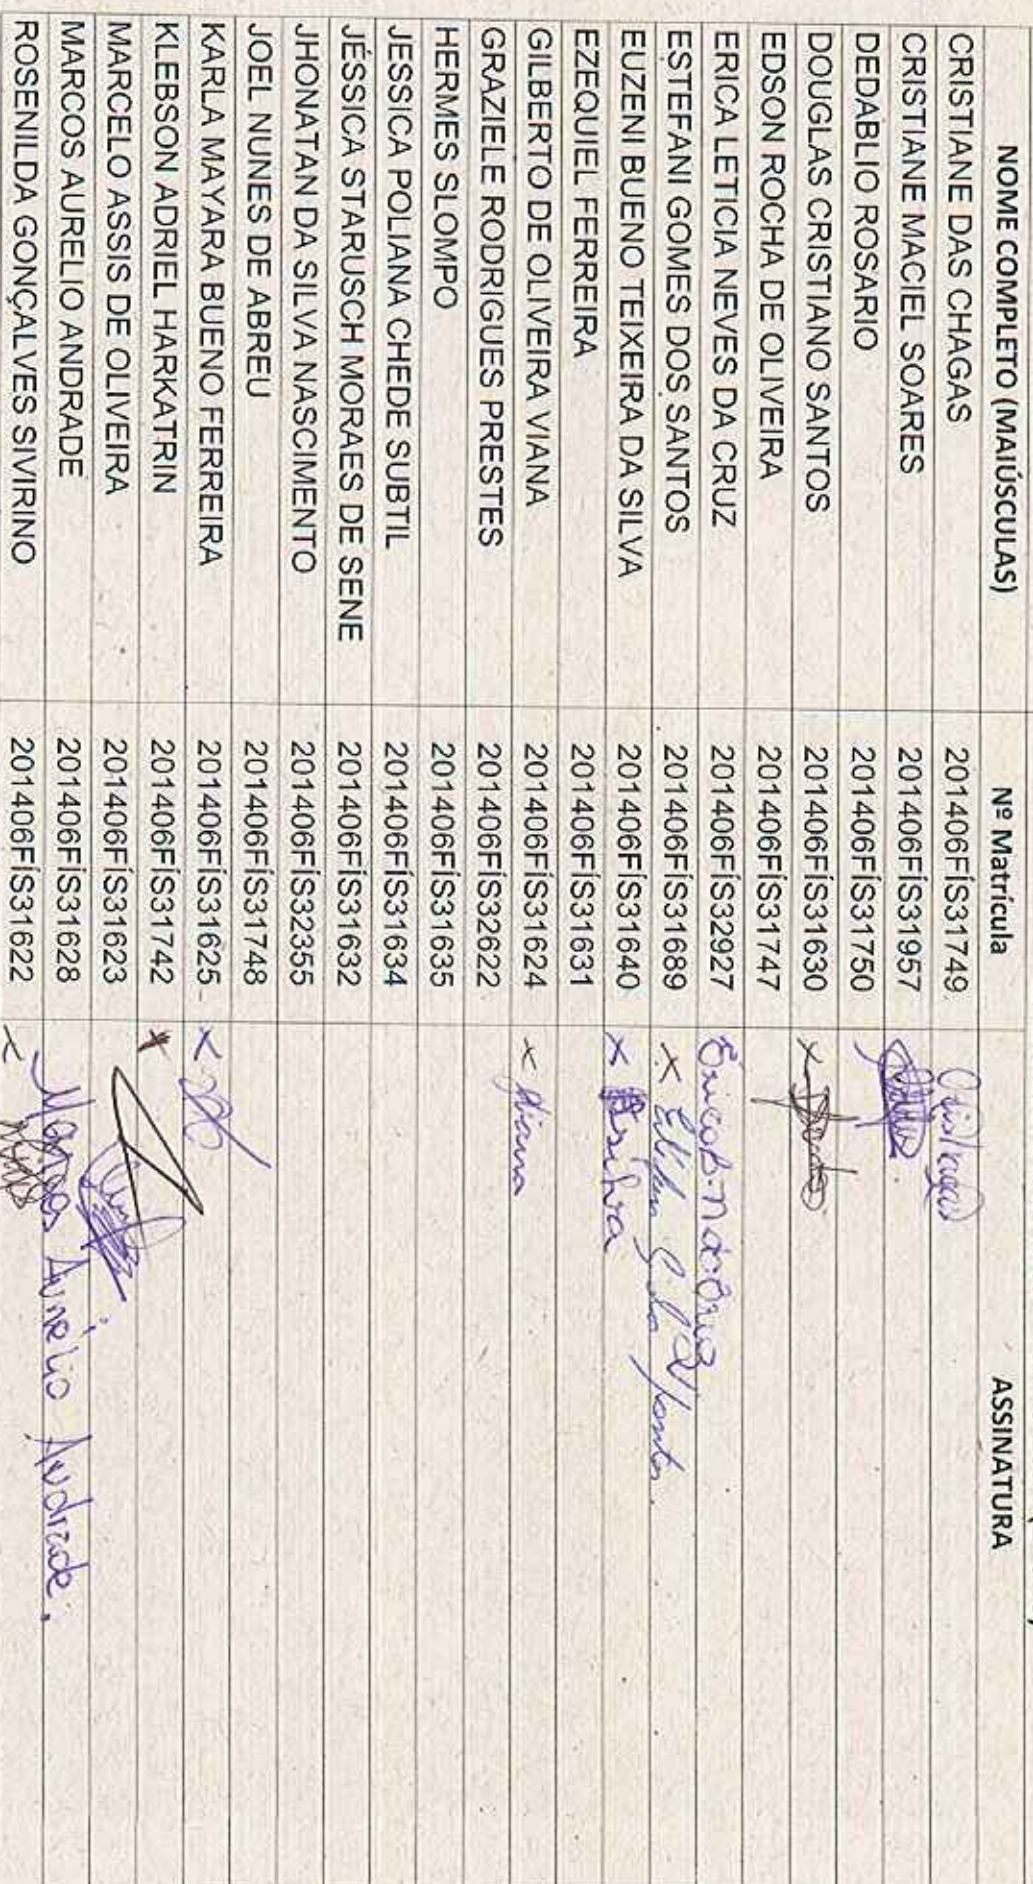 NOME COMPLETO (MAIÚSCULAS) Nº Matrícula ASSINATURA
CRISTIANE DAS CHAGAS 201406FÍS31749
CRISTIANE MACIEL SOARES 201406FÍS31957
DEDABLIO ROSARIO 201406FÍS31750
DOUGLAS CRISTIANO SANTOS 201406FÍS31630 x
EDSON ROCHA DE OLIVEIRA 201406FÍS31747
ERICA LETICIA NEVES DA CRUZ 201406FÍS32927
ESTEFANI GOMES DOS SANTOS 201406FÍS31689 x
EUZENI BUENO TEIXEIRA DA SILVA 201406FÍS31640 x
EZEQUIEL FERREIRA 201406FÍS31631
GILBERTO DE OLIVEIRA VIANA 201406FÍS31624 x Viana
GRAZIELE RODRIGUES PRESTES 201406FÍS32622
HERMES SLOMPO 201406FÍS31635
JESSICA POLIANA CHEDE SUBTIL 201406FÍS31634
JÉSSICA STARUSCH MORAES DE SENE 201406FÍS31632
JHONATAN DA SILVA NASCIMENTO 201406FÍS32355
JOEL NUNES DE ABREU 201406FÍS31748
KARLA MAYARA BUENO FERREIRA 201406FÍS31625 x
KLEBSON ADRIEL HARKATRIN 201406FÍS31742 x
MARCELO ASSIS DE OLIVEIRA 201406FÍS31623
MARCOS AURELIO ANDRADE 201406FÍS31628 Marcos Aurélio Andrade.
ROSENILDA GONÇALVES SIVIRINO 201406FÍS31622 x